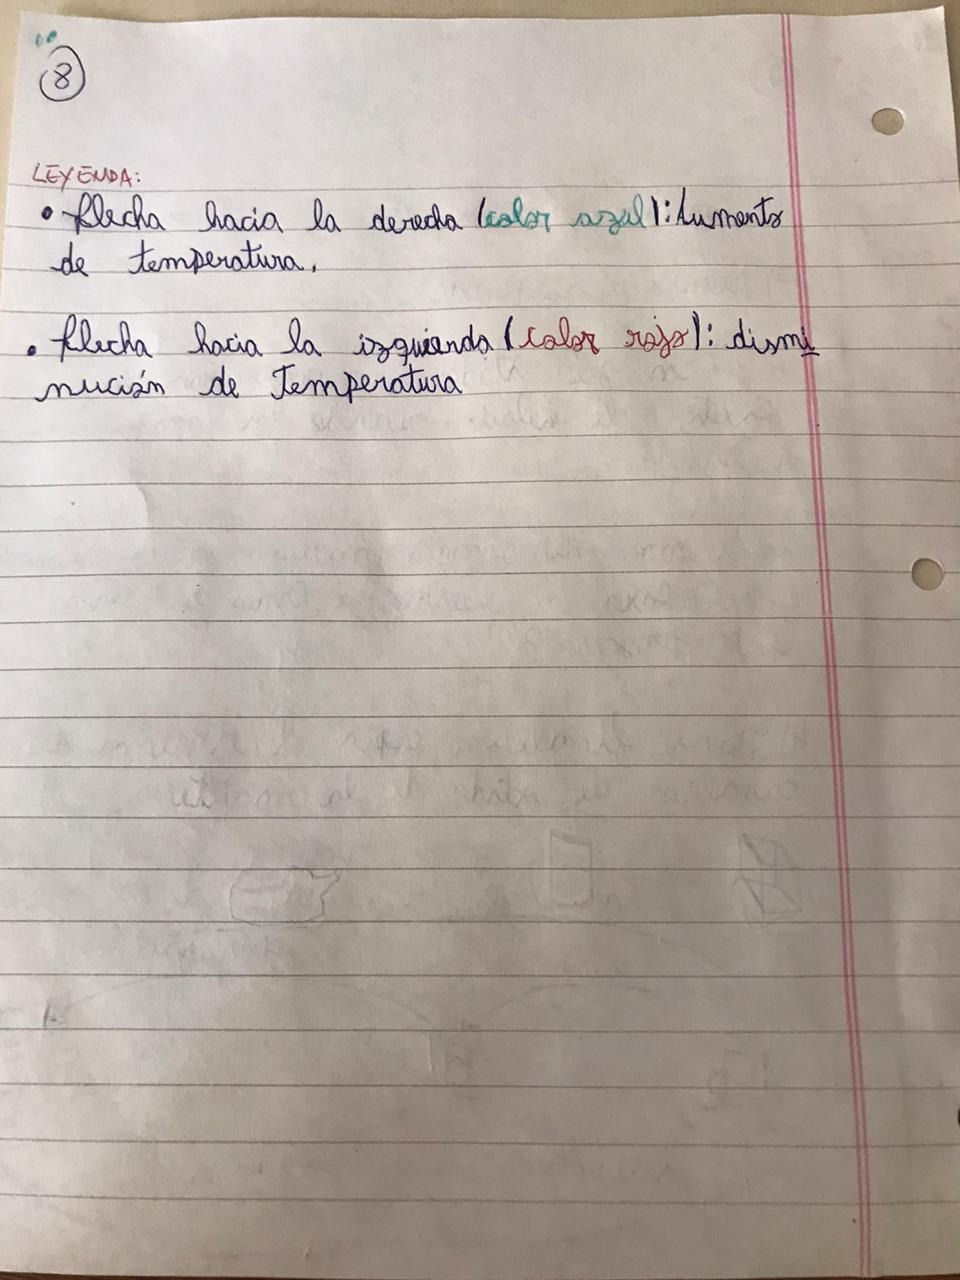 8
LEYENDA:
• flecha hacia la derecha (color azul): Aumento
de temperatura.
• flecha hacia la izquierda (color rojo): dismi
nución de Temperatura